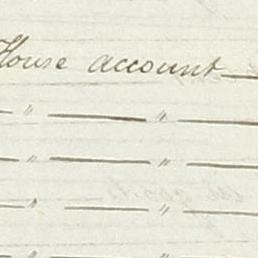 House account —
— " — " —
— " — " —
— " — " —
— " — " —